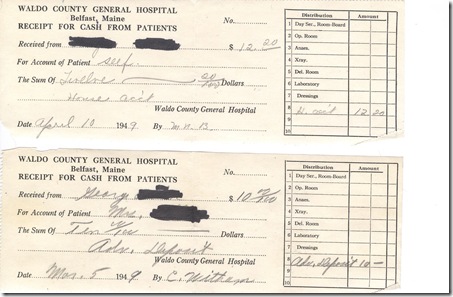 WALDO COUNTY GENERAL HOSPITAL
Belfast, Maine
RECEIPT FOR CASH FROM PATIENTS
No.
Received from $ 12.20
For Account of Patient Self.
The Sum Of Twelve 20/100 Dollars
House acc't
Waldo County General Hospital
Date April 10 1949 By M.R.B.
Distribution Amount
1 Day Ser., Room-Board
2 Op. Room
3 Anaes.
4 Xray.
5 Del. Room
6 Laboratory
7 Dressings
8 H. acc't 12.20
9
10
WALDO COUNTY GENERAL HOSPITAL
Belfast, Maine
RECEIPT FOR CASH FROM PATIENTS
No.
Received from George $ 10
For Account of Patient Mrs.
The Sum Of Ten Dollars
Adv. Deposit
Waldo County General Hospital
Date Mar. 5 1949 By C. Witham
Distribution Amount
1 Day Ser., Room-Board
2 Op. Room
3 Anaes.
4 Xray.
5 Del. Room
6 Laboratory
7 Dressings
8 Adv. Deposit 10 —
9
10